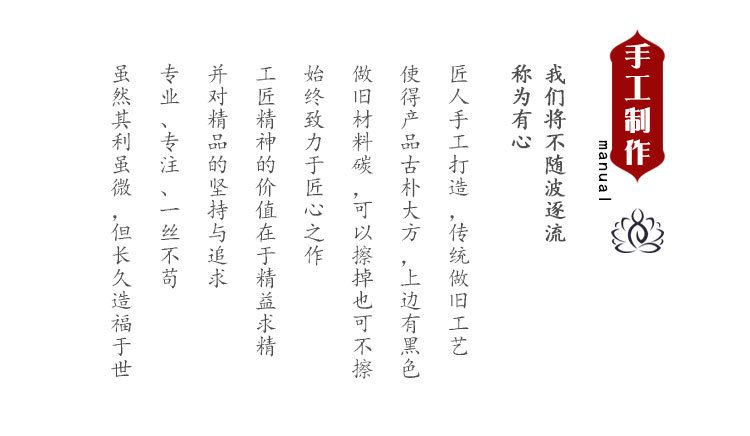 手工制作
manual
我们将不随波逐流
称为有心
匠人手工打造，传统做旧工艺
使得产品古朴大方，上边有黑色
做旧材料碳，可以擦掉也可不擦
始终致力于匠心之作
工匠精神的价值在于精益求精
并对精品的坚持与追求
专业、专注、一丝不苟
虽然其利虽微，但长久造福于世